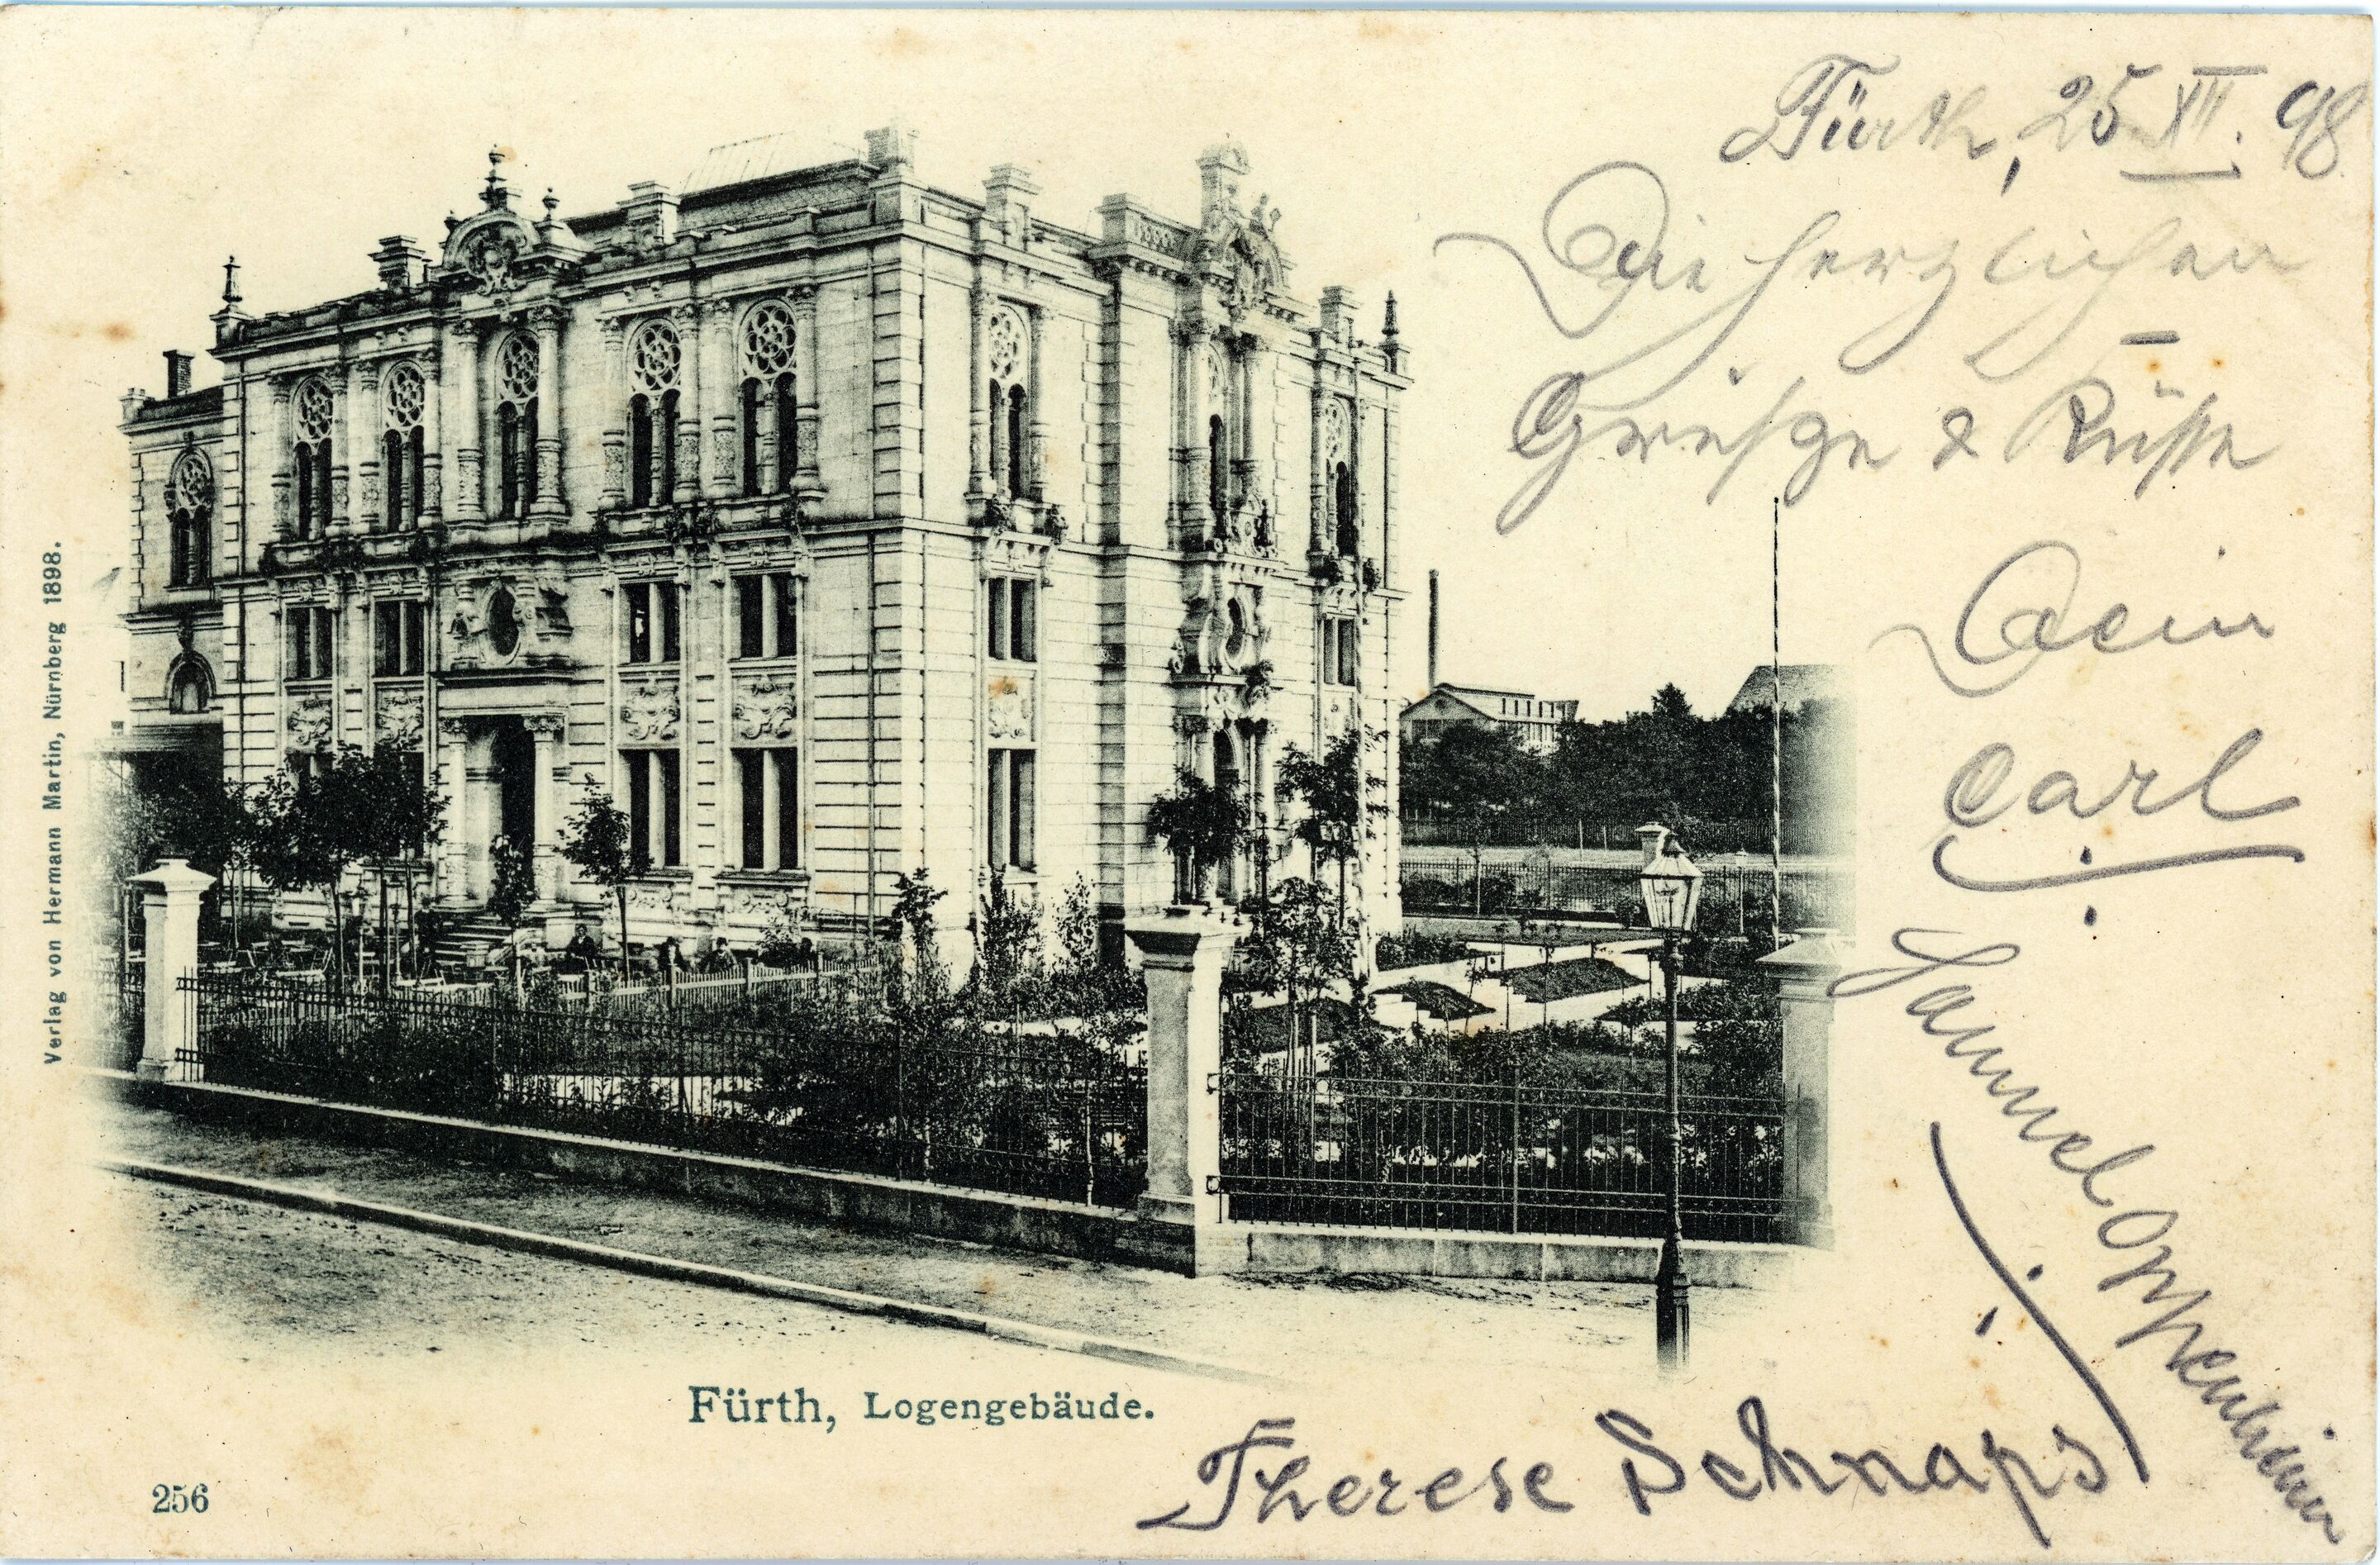 Fürth, 25 XII. 98.
Die herzlichen
Grüsze & Küsse
Dein
Carl
Samuel Oppenheimer
Therese Schnaps
Fürth, Logengebäude.
256
Verlag von Hermann Martin, Nürnberg 1898.